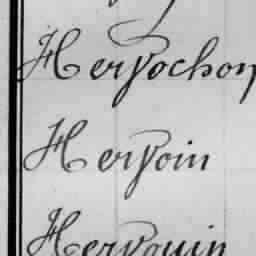 Hervochon
Hervoin
Hervouin